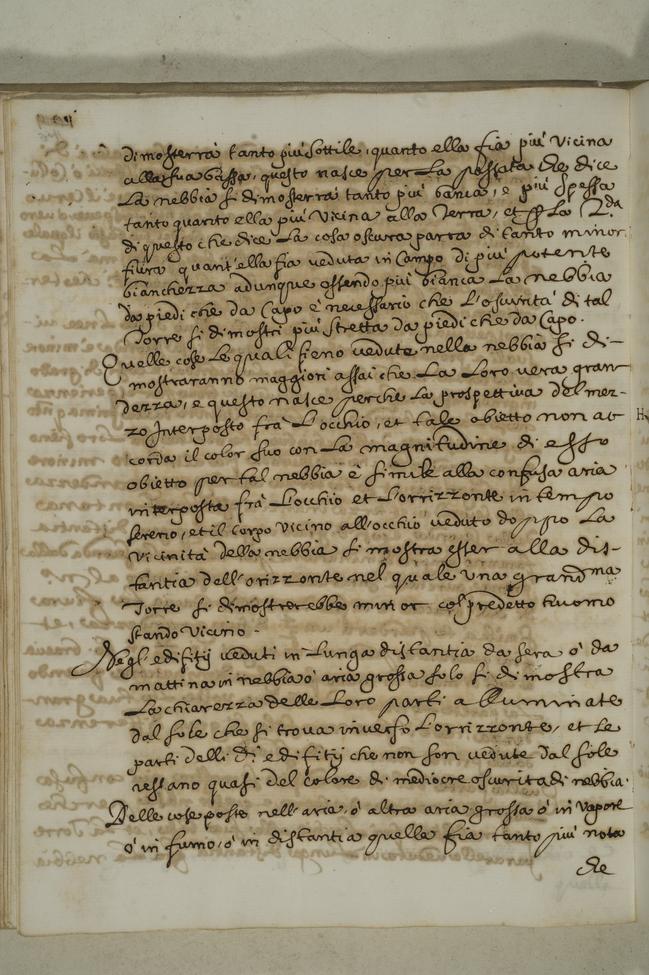 dimosterrà tanto più sottile, quanto ella fia più Vicina
alla sua bassa, questo nasce per La passata che dice
La nebbia si dimosterrà tanto più bianca, e più spessa
tanto quanto ella più Vicina alla Terra, et p La 2.da
di questo che dice La cosa oscura parrà di tanto minor
fiura quant'ella fia veduta in Campo di più potente
bianchezza adunque essendo più bianca La nebbia
da piedi che da Capo è necessario che L'oscurità di tal
Torre si dimostri più stretta da piedi che da Capo.
Quelle cose Le quali sieno vedute nella nebbia si di-
mostraranno maggiori assai che La Loro vera gran
dezza, e questo nasce perche La prospettiva del mez-
zo Interposto frà L'occhio, et tale obietto non ac
corda il color suo con La magnitudine di esso
obietto per tal nebbia è simile alla confusa aria
interposta frà L'occhio et L'orrizzonte in tempo
sereno, et il corpo vicino all'occhio veduto doppo La
Vicinità della nebbia si mostra esser alla dis-
tantia dell'orizzonte nel quale una grand.ma
Torre si dimostrerebbe minor ch'el predetto huomo
stando Vicino.
Negl'edifitij veduti in Lunga distantia da sera ò da
mattina in nebbia ò aria grossa solo si dimostra
La chiarezza delle Loro parti alluminate
dal sole che si trova inverso L'orrizzonte, et Le
parti delli di edifitij che non son vedute dal sole
restano quasi del colore di mediocre oscurità di nebbia.
Delle cose poste nell'aria, ò altra aria grossa ò in vapore
ò in fumo, ò in distantia quella fia tanto più nota
che